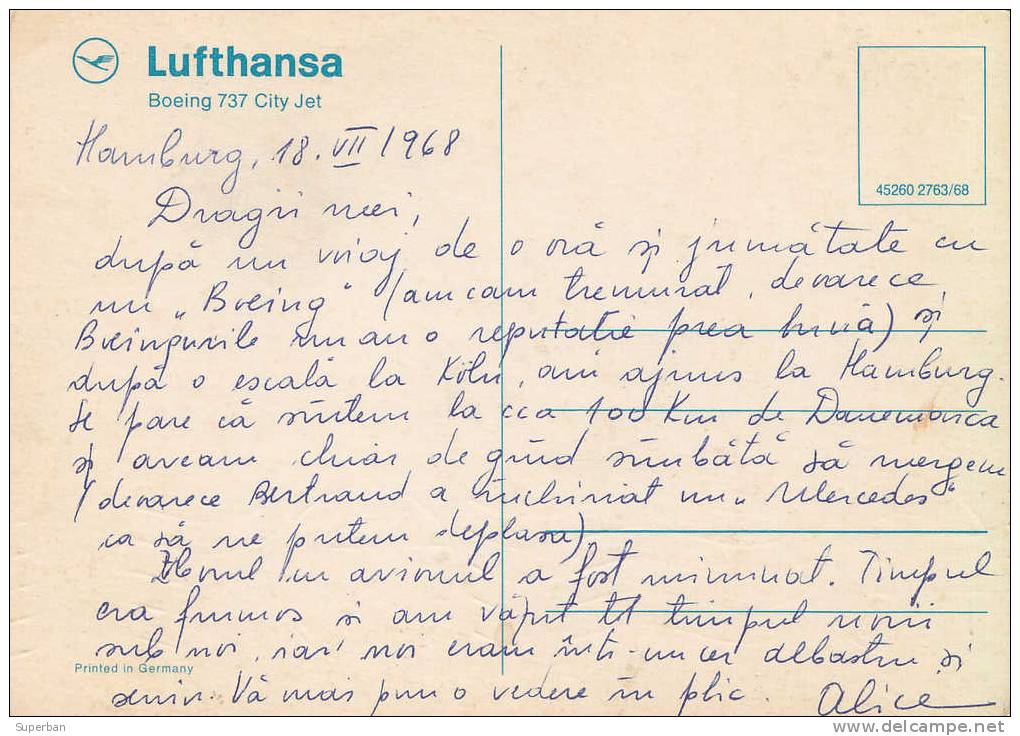 Lufthansa
Boeing 737 City Jet
45260 2763/68
Hamburg, 18. VII 1968
Dragii mei,
după un voiaj de o oră și jumătate cu
un „Boeing" (am cam tremurat, deoarece
Boeingurile nu au o reputație prea bună) și
după o escală la Köln, am ajuns la Hamburg.
Se pare că sîntem la cca 100 Km de Danemarca
și aveam chiar de gînd sîmbătă să mergem
(deoarece Bertrand a închiriat un „Mercedes"
ca să ne putem deplasa)
Zborul cu avionul a fost minunat. Timpul
era frumos și am văzut tot timpul norii
sub noi, iar noi eram într-un cer albastru și
senin. Vă mai pun o vedere în plic. Alice
Printed in Germany
Superban
www.delcampe.net